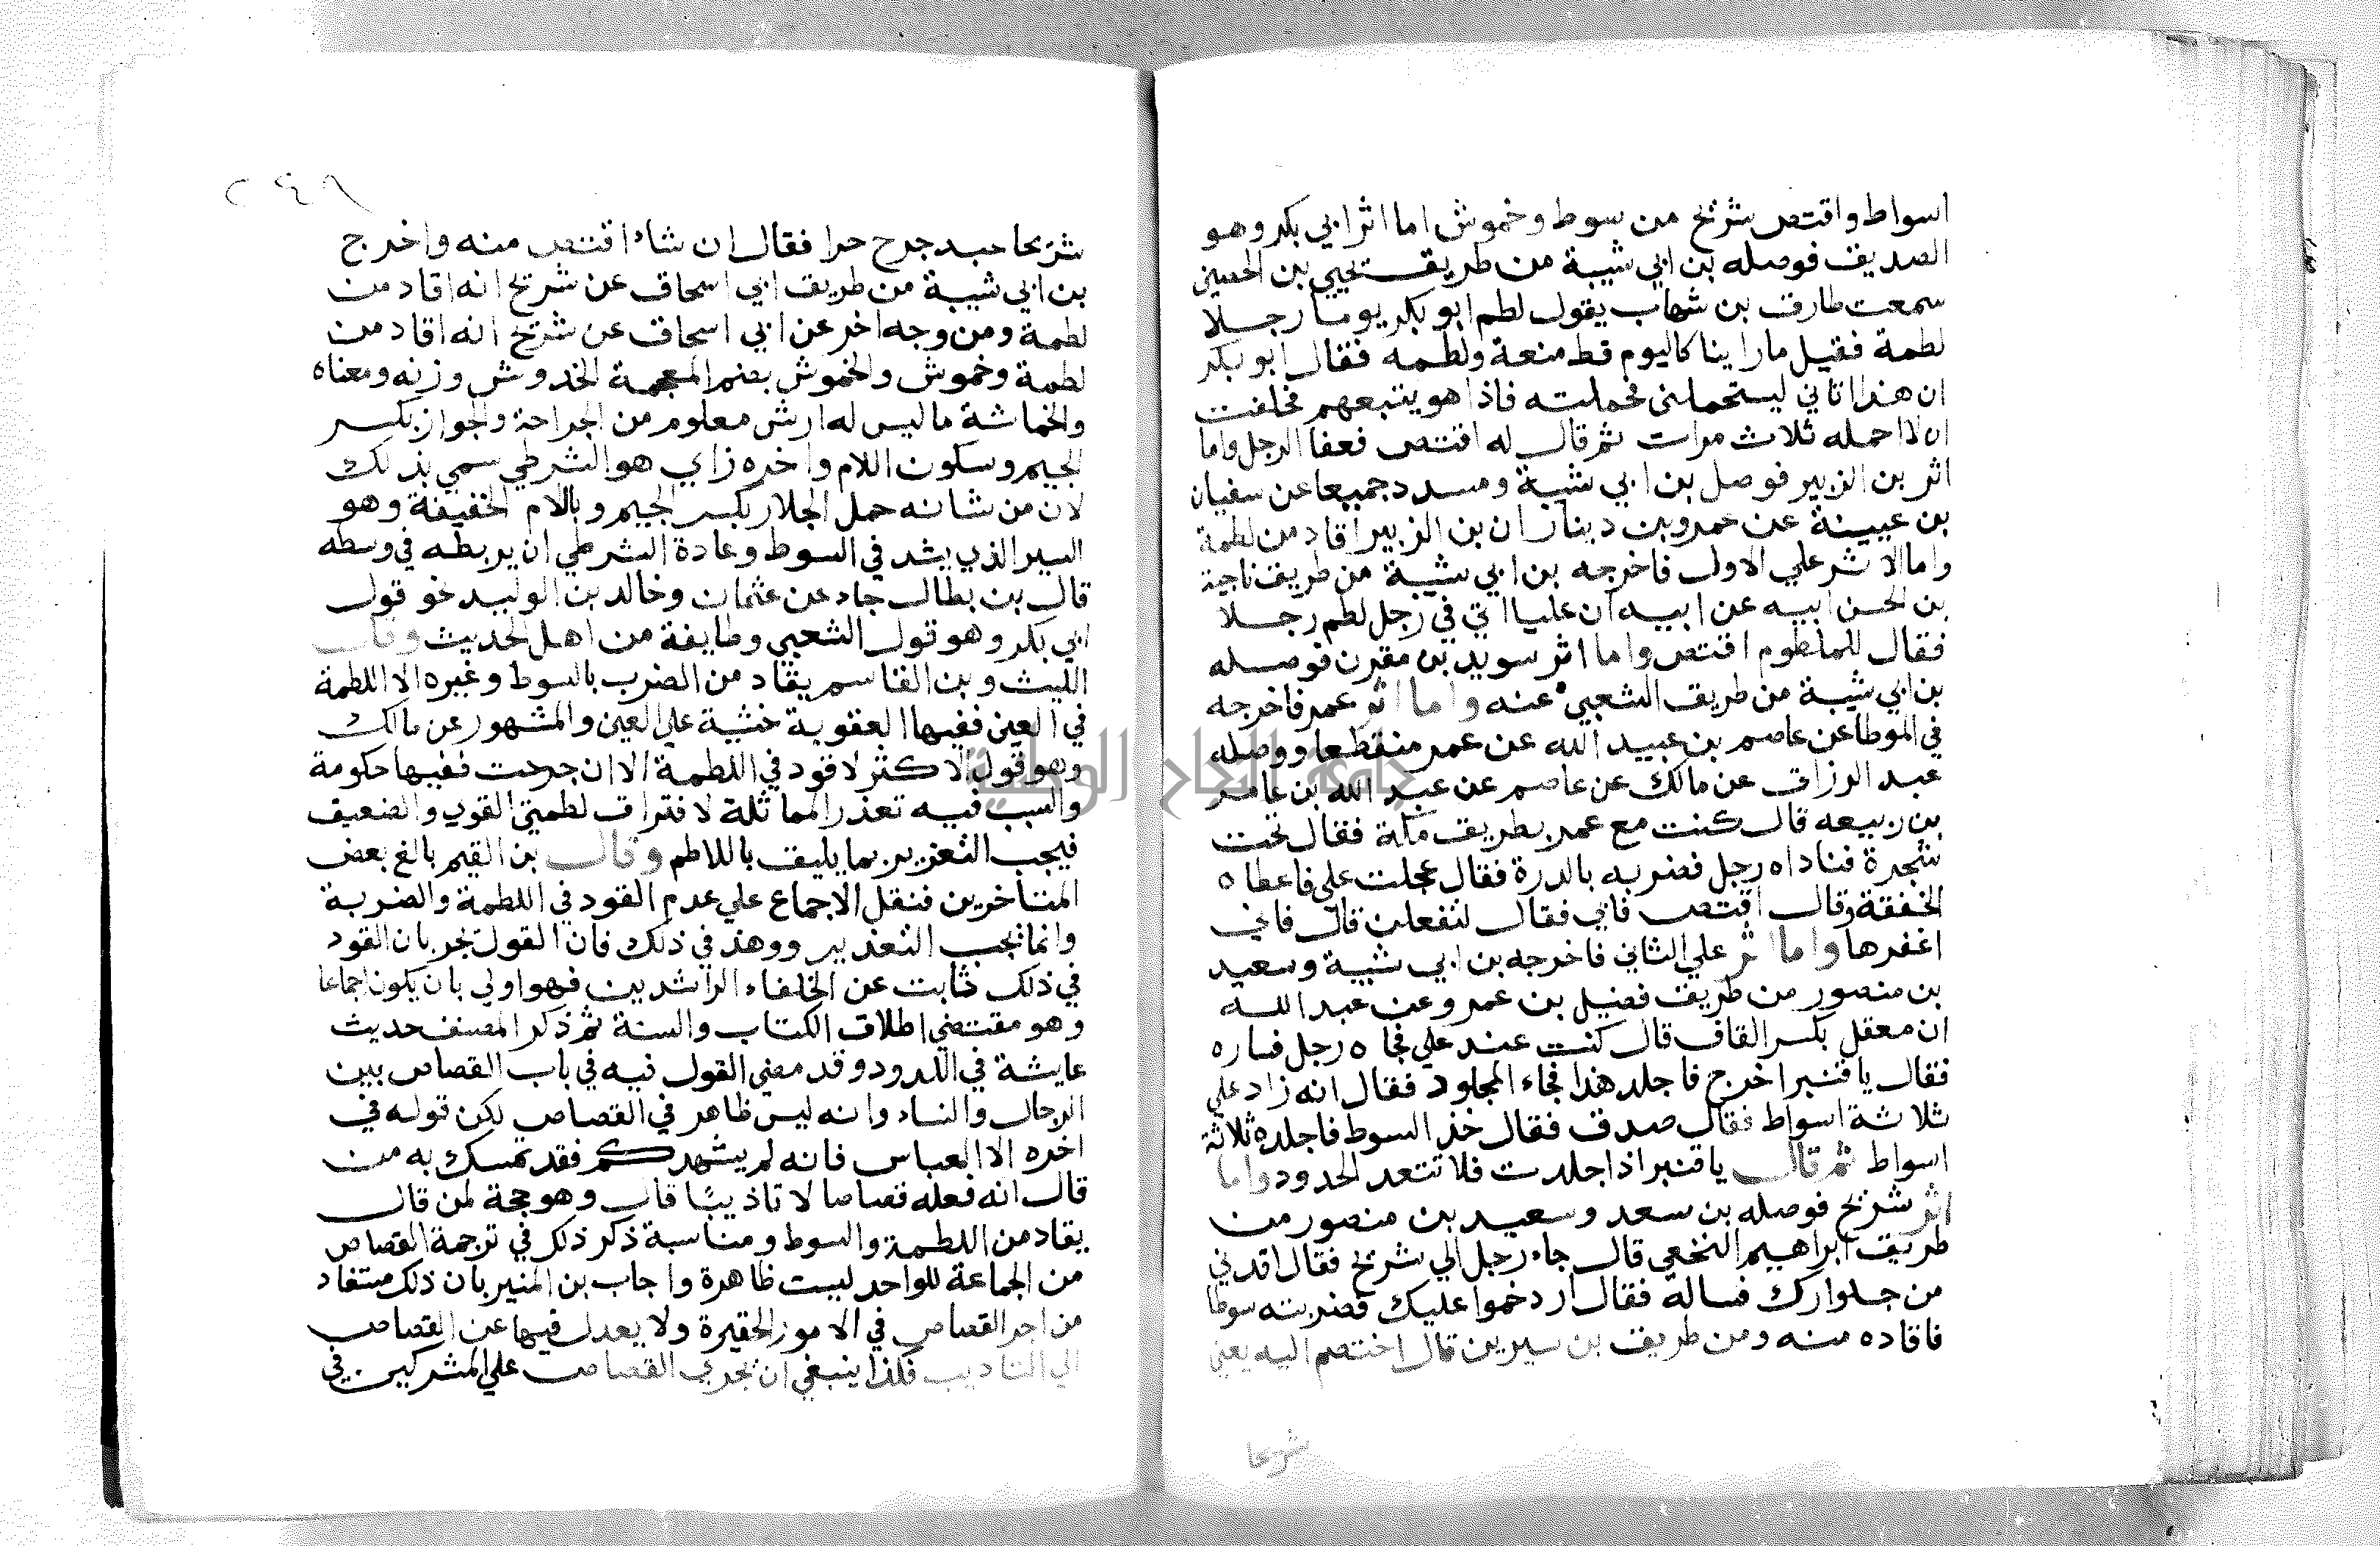 اسواط واقتص شريح من سوط وخموش اما اثر ابي بكر وهو
الصديق فوصله بن ابي شيبة من طريق يحيي بن الحصين
سمعت طارق بن شهاب يقول لطم ابو بكر يوما رجلا
لطمة فقيل ما راينا كاليوم قط منعة ولطمه فقال ابو بكر
ان هذا اتاني ليستحملني فحملته فاذا هو يتبعهم فحلفت
ان لا احمله ثلاث مرات ثم قال له اقتص فعفا الرجل واما
اثر بن الزبير فوصل بن ابي شيبة ومسدد جميعا عن سفيان
بن عيينة عن عمرو بن دينار ان بن الزبير اقاد من لطمة
واما الاثر علي الاول فاخرجه بن ابي شيبة من طريق ناجية
بن الحسن ابيه عن ابيه ان عليا اتي في رجل لطم رجلا
فقال للملطوم اقتص واما اثر سويد بن مقرن فوصله
بن ابي شيبة من طريق الشعبي عنه واما اثر عمر فاخرجه
في الموطا عن عاصم بن عبيد الله عن عمر منقطعا ووصله
عبد الرزاق عن مالك عن عاصم عن عبد الله بن عامر
بن ربيعه قال كنت مع عمر بطريق مكة فقال تحت
شجرة فناداه رجل فضربه بالدرة فقال عجلت علي فاعطاه
الخفقة وقال اقتص فابي فقال لتفعلن قال فاني
اغفرها واما اثر علي الثاني فاخرجه بن ابي شيبة وسعيد
بن منصور من طريق فضيل بن عمرو عن عبد الله
ان معقل بكسر القاف قال كنت عند علي فجاه رجل فساره
فقال يا قنبر اخرج فاجلد هذا فجاء المجلود فقال انه زاد علي
ثلاثة اسواط فقال صدق فقال خذ السوط فاجلده ثلاثة
اسواط ثم قال يا قنبر اذا جلدت فلا تتعد الحدود واما
اثر شريح فوصله بن سعد وسعيد بن منصور من
طريق ابراهيم النخعي قال جاء رجل الي شريح فقال اقدني
من جلوازك فساله فقال ازدحموا عليك فضربته سوطا
فاقاده منه ومن طريق بن سيرين قال اختصم اليه يعني
شريحا
٢٤٩
شريحا عبد جرح حرا فقال ان شاء اقتص منه واخرج
بن ابي شيبة من طريق ابي اسحاق عن شريح انه اقاد من
لطمة ومن وجه اخر عن ابي اسحاق عن شريح انه اقاد من
لطمة وخموش والخموش بضم المعجمة الخدوش وزنه ومعناه
والخماشة ما ليس له ارش معلوم من الجراحة والجواز بكسر
الجيم وسكون اللام واخره زاي هو الشرطي سمي بذلك
لان من شانه حمل الجلاز بكسر الجيم وبالام الخفيفة وهو
السير الذي يشد في السوط وعادة الشرطي ان يربطه في وسطه
قال بن بطال جاء عن عثمان وخالد بن الوليد نحو قول
ابي بكر وهو قول الشعبي وطايفة من اهل الحديث وقال
الليث وبن القاسم يقاد من الضرب بالسوط وغيره الا اللطمة
في العين ففيها العقوبة خشية علي العين والمشهور عن مالك
وهو قول الاكثر لا قود في اللطمة الا ان جرحت ففيها حكومة
والسبب فيه تعذر المماثلة لافتراق لطمتي القوي والضعيف
فيجب التعزير بما يليق باللاطم وقال بن القيم بالغ بعض
المتاخرين فنقل الاجماع علي عدم القود في اللطمة والضربة
وانما يجب التعذير ووهذ في ذلك فان القول بجربان القود
في ذلك ثابت عن الخلفاء الراشدين فهو اولي بان يكون اجماعا
وهو مقتضي اطلاق الكتاب والسنة ثم ذكر المصنف حديث
عايشة في اللدود وقد مضي القول فيه في باب القصاص بين
الرجال والنساء وانه ليس ظاهر في القصاص لكن قوله في
اخره الا العباس فانه لم يشهدكم فقد تمسك به من
قال انه فعله قصاصا لا تاديبا قاب وهو حجة لمن قال
يقاد من اللطمة والسوط ومناسبة ذكر ذلك في ترجمة القصاص
من الجماعة للواحد ليست ظاهرة واجاب بن المنير بان ذلك مستفاد
من اجر القصاص في الامور الحقيرة ولا يعدل فيها عن القصاص
الي التاديب فكذا ينبغي ان يجري القصاص علي المشركين في
جامعة النجاح الوطنية